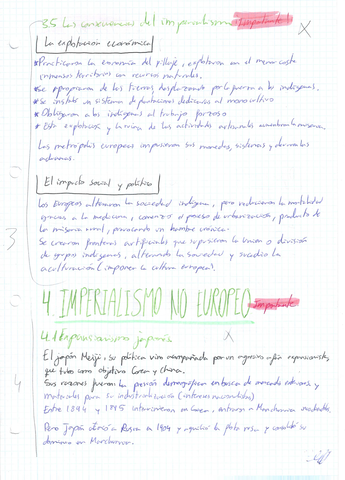 3.5 Las consecuencias del imperialismo Importante!
La explotación económica
* Practicaron la economía del pillaje, explotaron en el menor coste
inmensos territorios con recursos naturales.
* Se apropiaron de las tierras desplazando por la fuerza a los indígenas.
* Se instaló un sistema de plantaciones dedicadas al monocultivo
* Obligaron a los indígenas al trabajo forzoso
* Esta explotación y la ruina de las actividades artesanales la miseria.
Las metrópolis europeas impusieron sus monedas, sistemas y
aduanas.
El impacto social y político
Los Europeos alteraron la sociedad indígena, pero redujeron la mortalidad
gracias a la medicina, comenzó el proceso de urbanización, producto de
la miseria rural, provocando un hambre crónica.
Se crearon fronteras artificiales que supusieron la unión o división
de grupos indígenas, alterando la sociedad y sucedió la
aculturación (imponer la cultura europea).
3
4. IMPERIALISMO NO EUROPEO Importante
4.1 Expansionismo japonés
El Japón Meiji, su política vino acompañada por un agresivo afán expansionista,
que tuvo como objetivo Corea y China.
Sus razones fueron la presión demográfica en busca de mercado exterior y
materiales para su industrialización (intereses nacionalistas)
Entre 1894 y 1895 intervinieron en Corea, entraron a Manchuria
4
Pero Japón atacó a Rusia en 1904 y aniquiló la flota rusa y consolidó su
dominio en Manchuria.